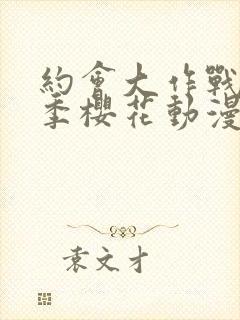 約會大作戰
季櫻花動漫
袁文才